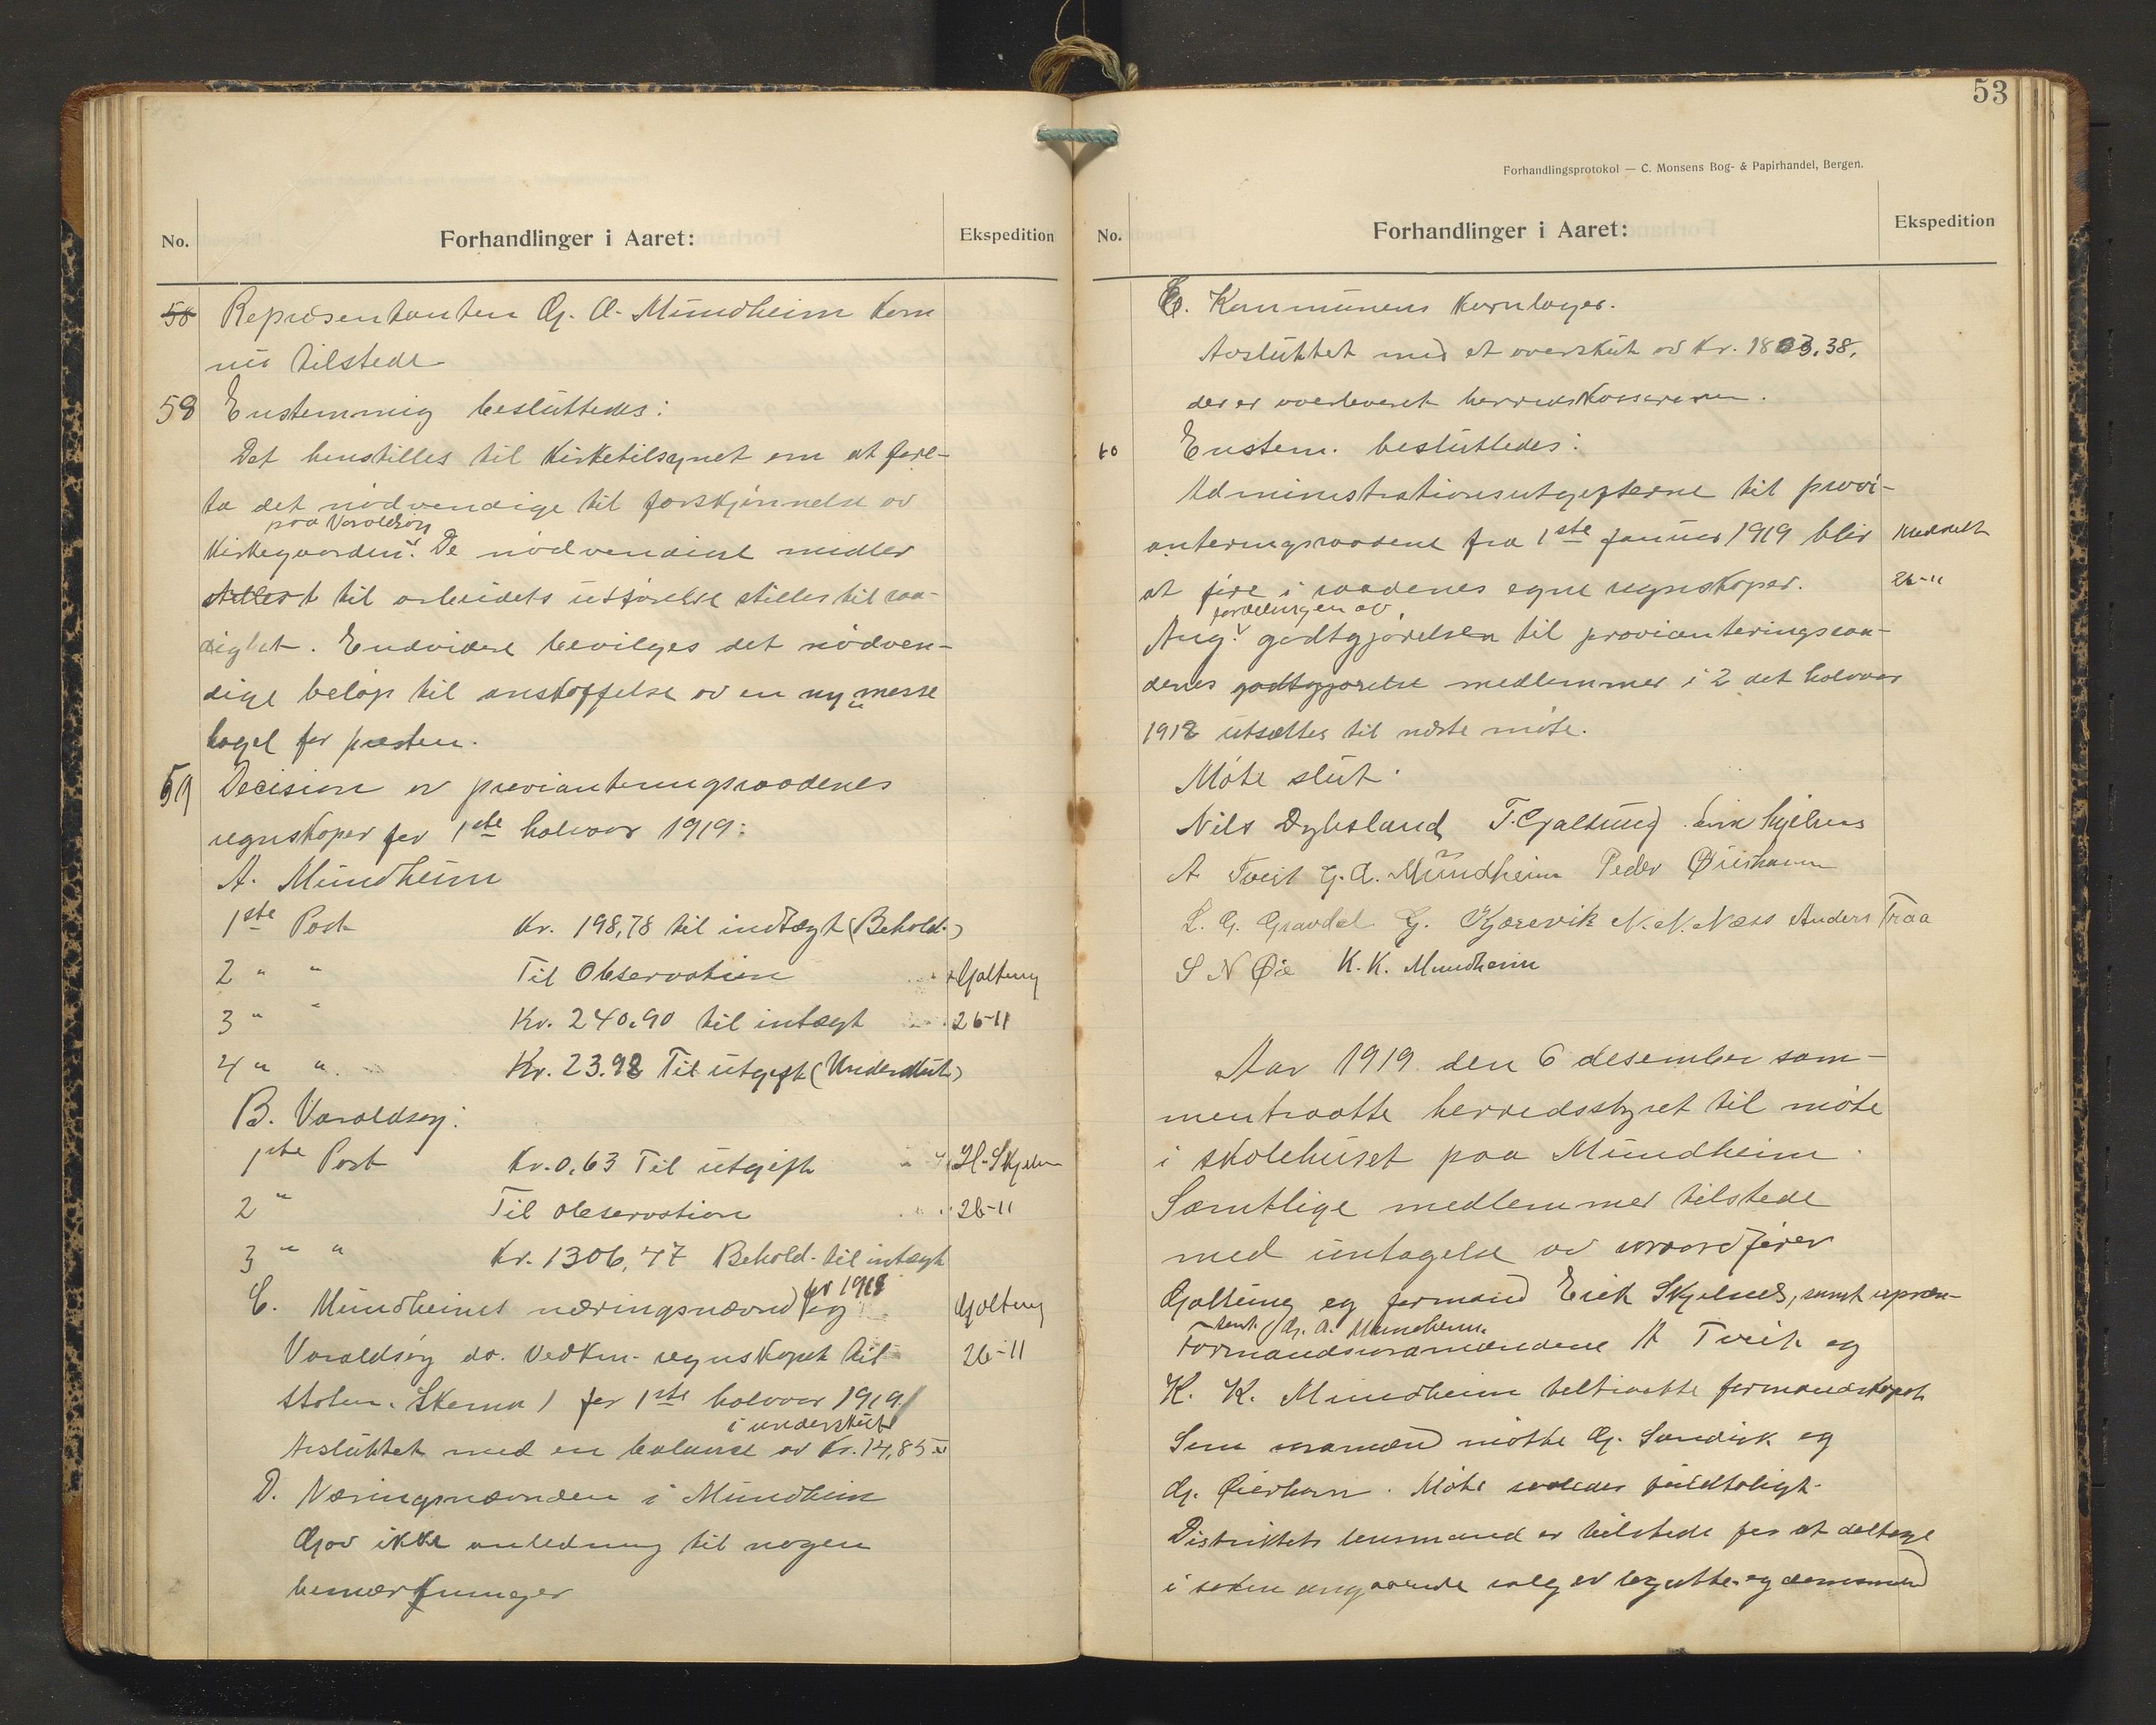 No.
Forhandlinger i Aaret:
Ekspedition
58 Repræsentanten G. A. Mundheim kom
nu tilstede
58 Enstemmig besluttedes:
Det henstilles til kirketilsynet om at fore-
ta det nødvendige til forskjønnelse av
paa Varaldsøy
kirkegaarden. De nødvendige midler
stillest til arbeidets utførelse stilles til raa-
dighet. Endvidere bevilges det nødven-
dige beløp til anskaffelse av en ny messe
hagel for presten.
59 Decision av provianteringsraadenes
regnskaper for 1ste halvaar 1919:
A. Mundheim
1ste Post Kr. 198,78 til indtægt (Behold.)
2 " " Til Observation Galtung
3 " " Kr. 240.90 til intægt 26-11
4 " " Kr. 23.98 Til utgift (Underskut)
B. Varaldsøy:
1ste Post Kr. 0,63 Til utgift H. Skjelnes
2 " Til observation 26-11
3 " " Kr. 1306,47 Behold. til intægt
for 1918
C. Mundheims næringsnævnd og Galtung
Varaldsøy do. Vedkm. regnskapet til 26-11
staten. Skema 1 for 1ste halvaar 1919
i underskut
Avsluttet med en balance av Kr. 14,85
D. Næringsnævnden i Mundheim
Gav ikke anledning til nogen
bemærkninger
53
Forhandlingsprotokol — C. Monsens Bog- & Papirhandel, Bergen.
No.
Forhandlinger i Aaret:
Ekspedition
E. Kommunens kornlager.
Avsluttet med et overskut av Kr. 1803,38,
der er overleveret herredskassereren.
60 Enstem. besluttedes:
Administrationsutgifterne til provi-
anteringsraadene fra 1ste januar 1919 blir Meddelt
at føre i raadenes egne regnskaper. 26-11
fordelingen av
Ang. godtgjørelsen til provianteringsraa-
denes godtgjørelse medlemmer i 2 det halvaar
1918 utsættes til næste møte.
Møte slut.
Nils Dybsland T. Galtung Erik Skjelnes
A Tveit G. A. Mundheim Peder Øierhavn
L. G. Gravdal G. Kjærevik N. N. Næss Anders Traa
S N Øie K. K. Mundheim
Aar 1919 den 6 desember sam-
mentraatte herredsstyret til møte
i skolehuset paa Mundheim.
Samtlige medlemmer tilstede
med untagelse av varaordfører
Galtung og formand Erik Skjelnes, samt repræsen-
tant G. A. Mundheim.
Formandsvaramændene A Tveit og
K. K. Mundheim beltraatte formandskapet
Som varamænd møtte G. Sandvik og
G. Øierhavn. Møte saaledes fuldtaligt.
Distriktets lensmand er tilstede for at deltage
i saken angaaende valg av lagrette- og domsmænd